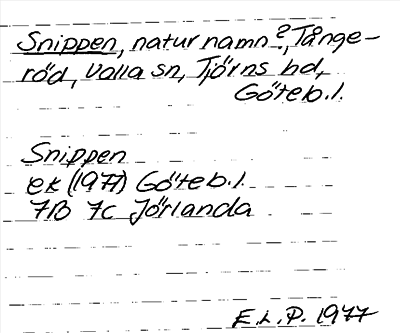 Snippen, naturnamn?, Tånge-
röd, Valla sn, Tjörns hd,
Göteb.l.
Snippen
ek (1977) Göteb.l.
7B 7c Jörlanda
E.L.P. 1977